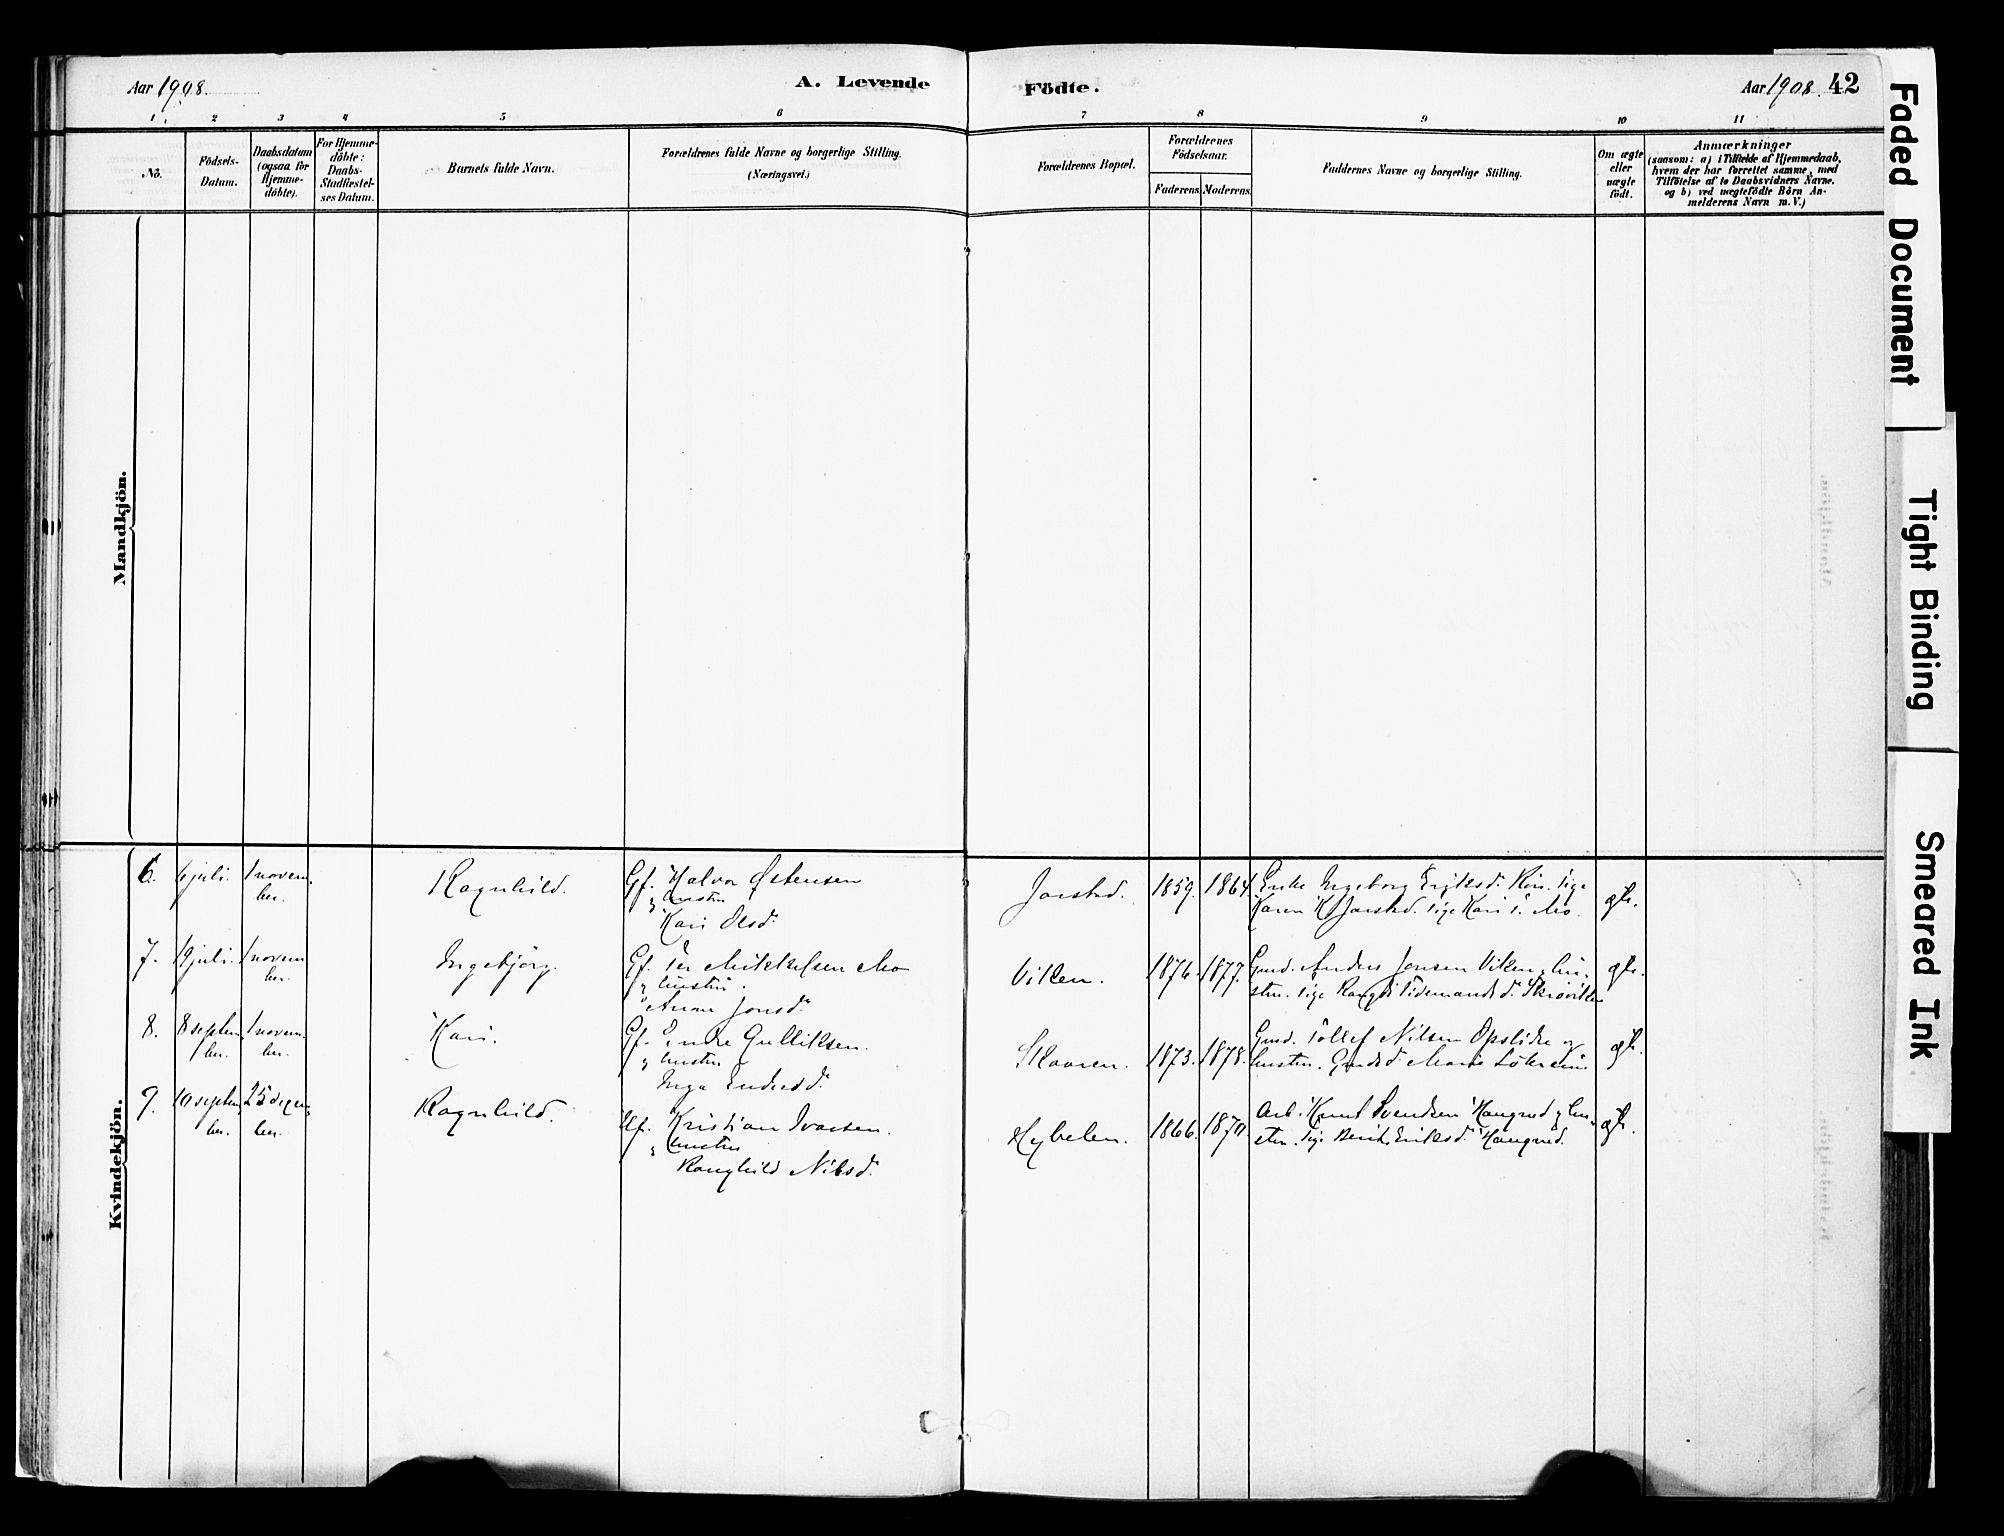 Aar 1908.
A. Levende
Födte.
Aar 1908. 42
1 2 3 4 5 6 7 8 9 10 11
No.
Födsels-
Datum.
Daabsdatum
(ogsaa for
Hjemme-
döbte).
For Hjemme-
döbte:
Daabs-
Stadfæstel-
ses Datum.
Barnets fulde Navn.
Forældrenes fulde Navne og borgerlige Stilling.
(Næringsvei.)
Forældrenes Bopæl.
Forældrenes
Födselsaar.
Faderens. Moderens.
Faddernes Navne og borgerlige Stilling.
Om ægte
eller
uægte
födt.
Anmærkninger
(saasom: a) i Tilfælde af Hjemmedaab,
hvem der har forrettet samme, med
Tilföielse af to Daabsvidners Navne.
og b) ved uægtefödte Börn An-
melderens Navn m. V.)
Mandkjön.
Kvindekjön.
6. 6 juli. 1 novem-
ber.
Ragnhild.
Gf. Halvor Østensen
og hustru
Kari Olsd.
Jarstad. 1859. 1864.
Enke Ingeborg Eriksd. pige
Karen K. Jarstad. pige Kari Mo.
gte.
7. 19 juli. 1 novem
ber.
Ingebjörg.
Gf. Per Mikkelsen Mo
og hustru.
Anne Jonsd.
Viken. 1876. 1877.
Gmd. Anders Jonsen Viken, hu-
stru. pige Tidemandsd. Skrøviken
gte.
8. 8 septem-
ber. 1 novem-
ber.
Kari.
Gf. Endre Gulliksen.
og hustru
Inga Endresd.
Skaaren. 1873. 1878.
Gmd. Tollef Nilsen Opslidre og
hustru. Gmdsd. Marit
gte.
9. 10 septem-
ber. 25 decem-
ber.
Ragnhild.
Kristian Ivarsen.
og hustru
Ranghild Nilsd.
Hybelen. 1866. 1870.
Arb. Knut Svendsen Haugrud og hu-
stru. pige Berit Eriksd. Haugrud.
gte.
Faded Document
Tight Binding
Smeared Ink